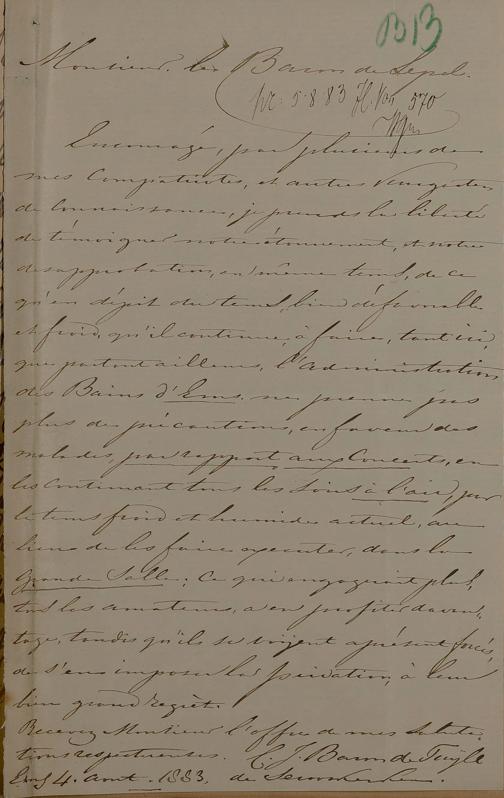 B13
Monsieur le Baron de Lepel.
pr. 5.8.83 J. No. 570
Encouragé, par plusieurs de
mes Compatriotes, et autres
de Connaissances, je prends la liberté
de témoigner notre étonnement, et notre
desapprobation, en même tems, de ce
qu'en dépit du tems, bien défavorable
et froid, qu'il continue, à faire, tant ici,
que partout ailleurs, l'administration
des Bains d'Ems, ne prenne pas
plus de précautions, en faveur des
malades, par rapport aux Concerts, en
les continuant tous les soirs à l'air, par
le tems froid et humide actuel, au
lieu de les faire executer, dans la
grande Salle; ce qui engagerait plus,
tous les amateurs, a en profiter davan-
tage, tandis qu'ils se voijent aprésent forcés,
de s'en imposer la privation, à leur
bien grand regrèt.
Recevez Monsieur l'offre de mes saluta-
tions respectueuses. C. J. Baron de Tuijll
Ems 4. aout. 1883. de Serooskerken.